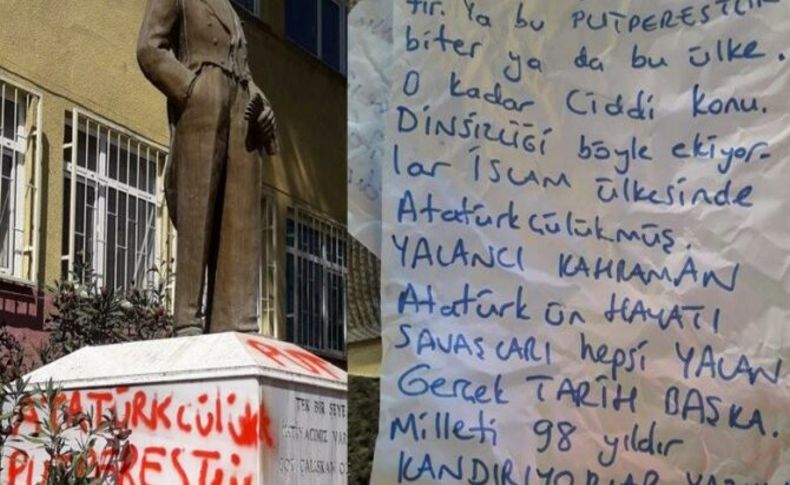 ATATÜRKcülük
PUTPERESTLİK
TEK BİR ŞEYE
İHTİYACIMIZ VAR
ÇOK ÇALIŞKAN
tir. Ya bu PUTPERESTLİK
biter ya da bu ülke.
O kadar Ciddi konu.
DİNSİZLİĞİ böyle ekiyor-
lar İSLAM ülkesinde
Atatürkçülükmüş.
YALANCI KAHRAMAN
Atatürk ün HAYATI
SAVAŞLARI hepsi YALAN
Gerçek TARİH BAŞKA.
Milleti 98 yıldır
KANDIRIYORLAR